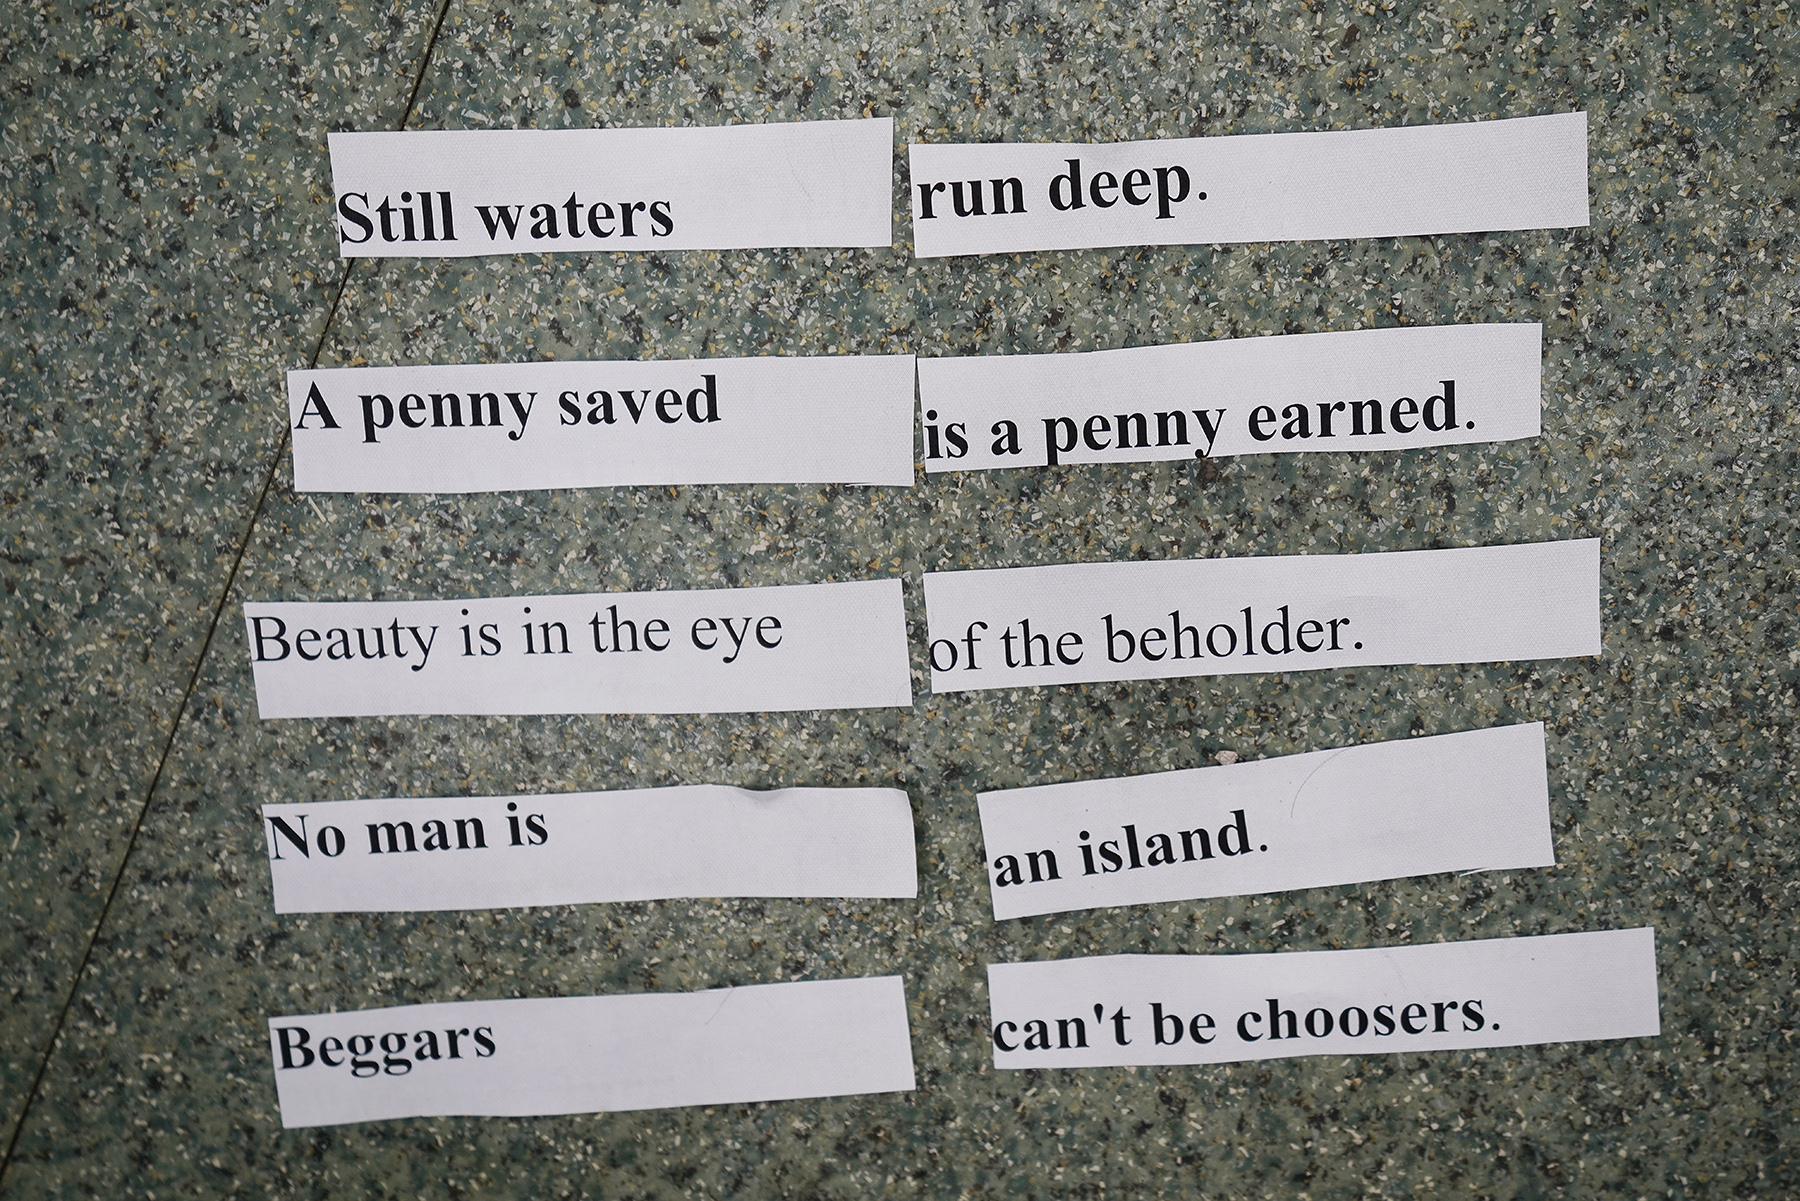 Still waters run deep.
A penny saved is a penny earned.
Beauty is in the eye of the beholder.
No man is an island.
Beggars can't be choosers.